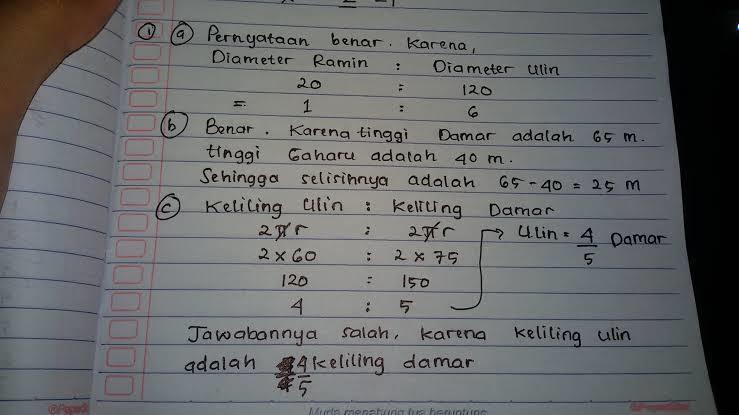 ① ⓐ Pernyataan benar. Karena,
Diameter Ramin : Diameter Ulin
20 : 120
= 1 : 6
ⓑ Benar. Karena tinggi Damar adalah 65 m.
tinggi Gaharu adalah 40 m.
Sehingga selisihnya adalah 65 - 40 = 25 m
ⓒ Keliling Ulin : Keliling Damar
2πr : 2πr → Ulin = 4/5 Damar
2 x 60 : 2 x 75
120 : 150
4 : 5
Jawabannya salah, karena keliling ulin
adalah 4/5 keliling damar